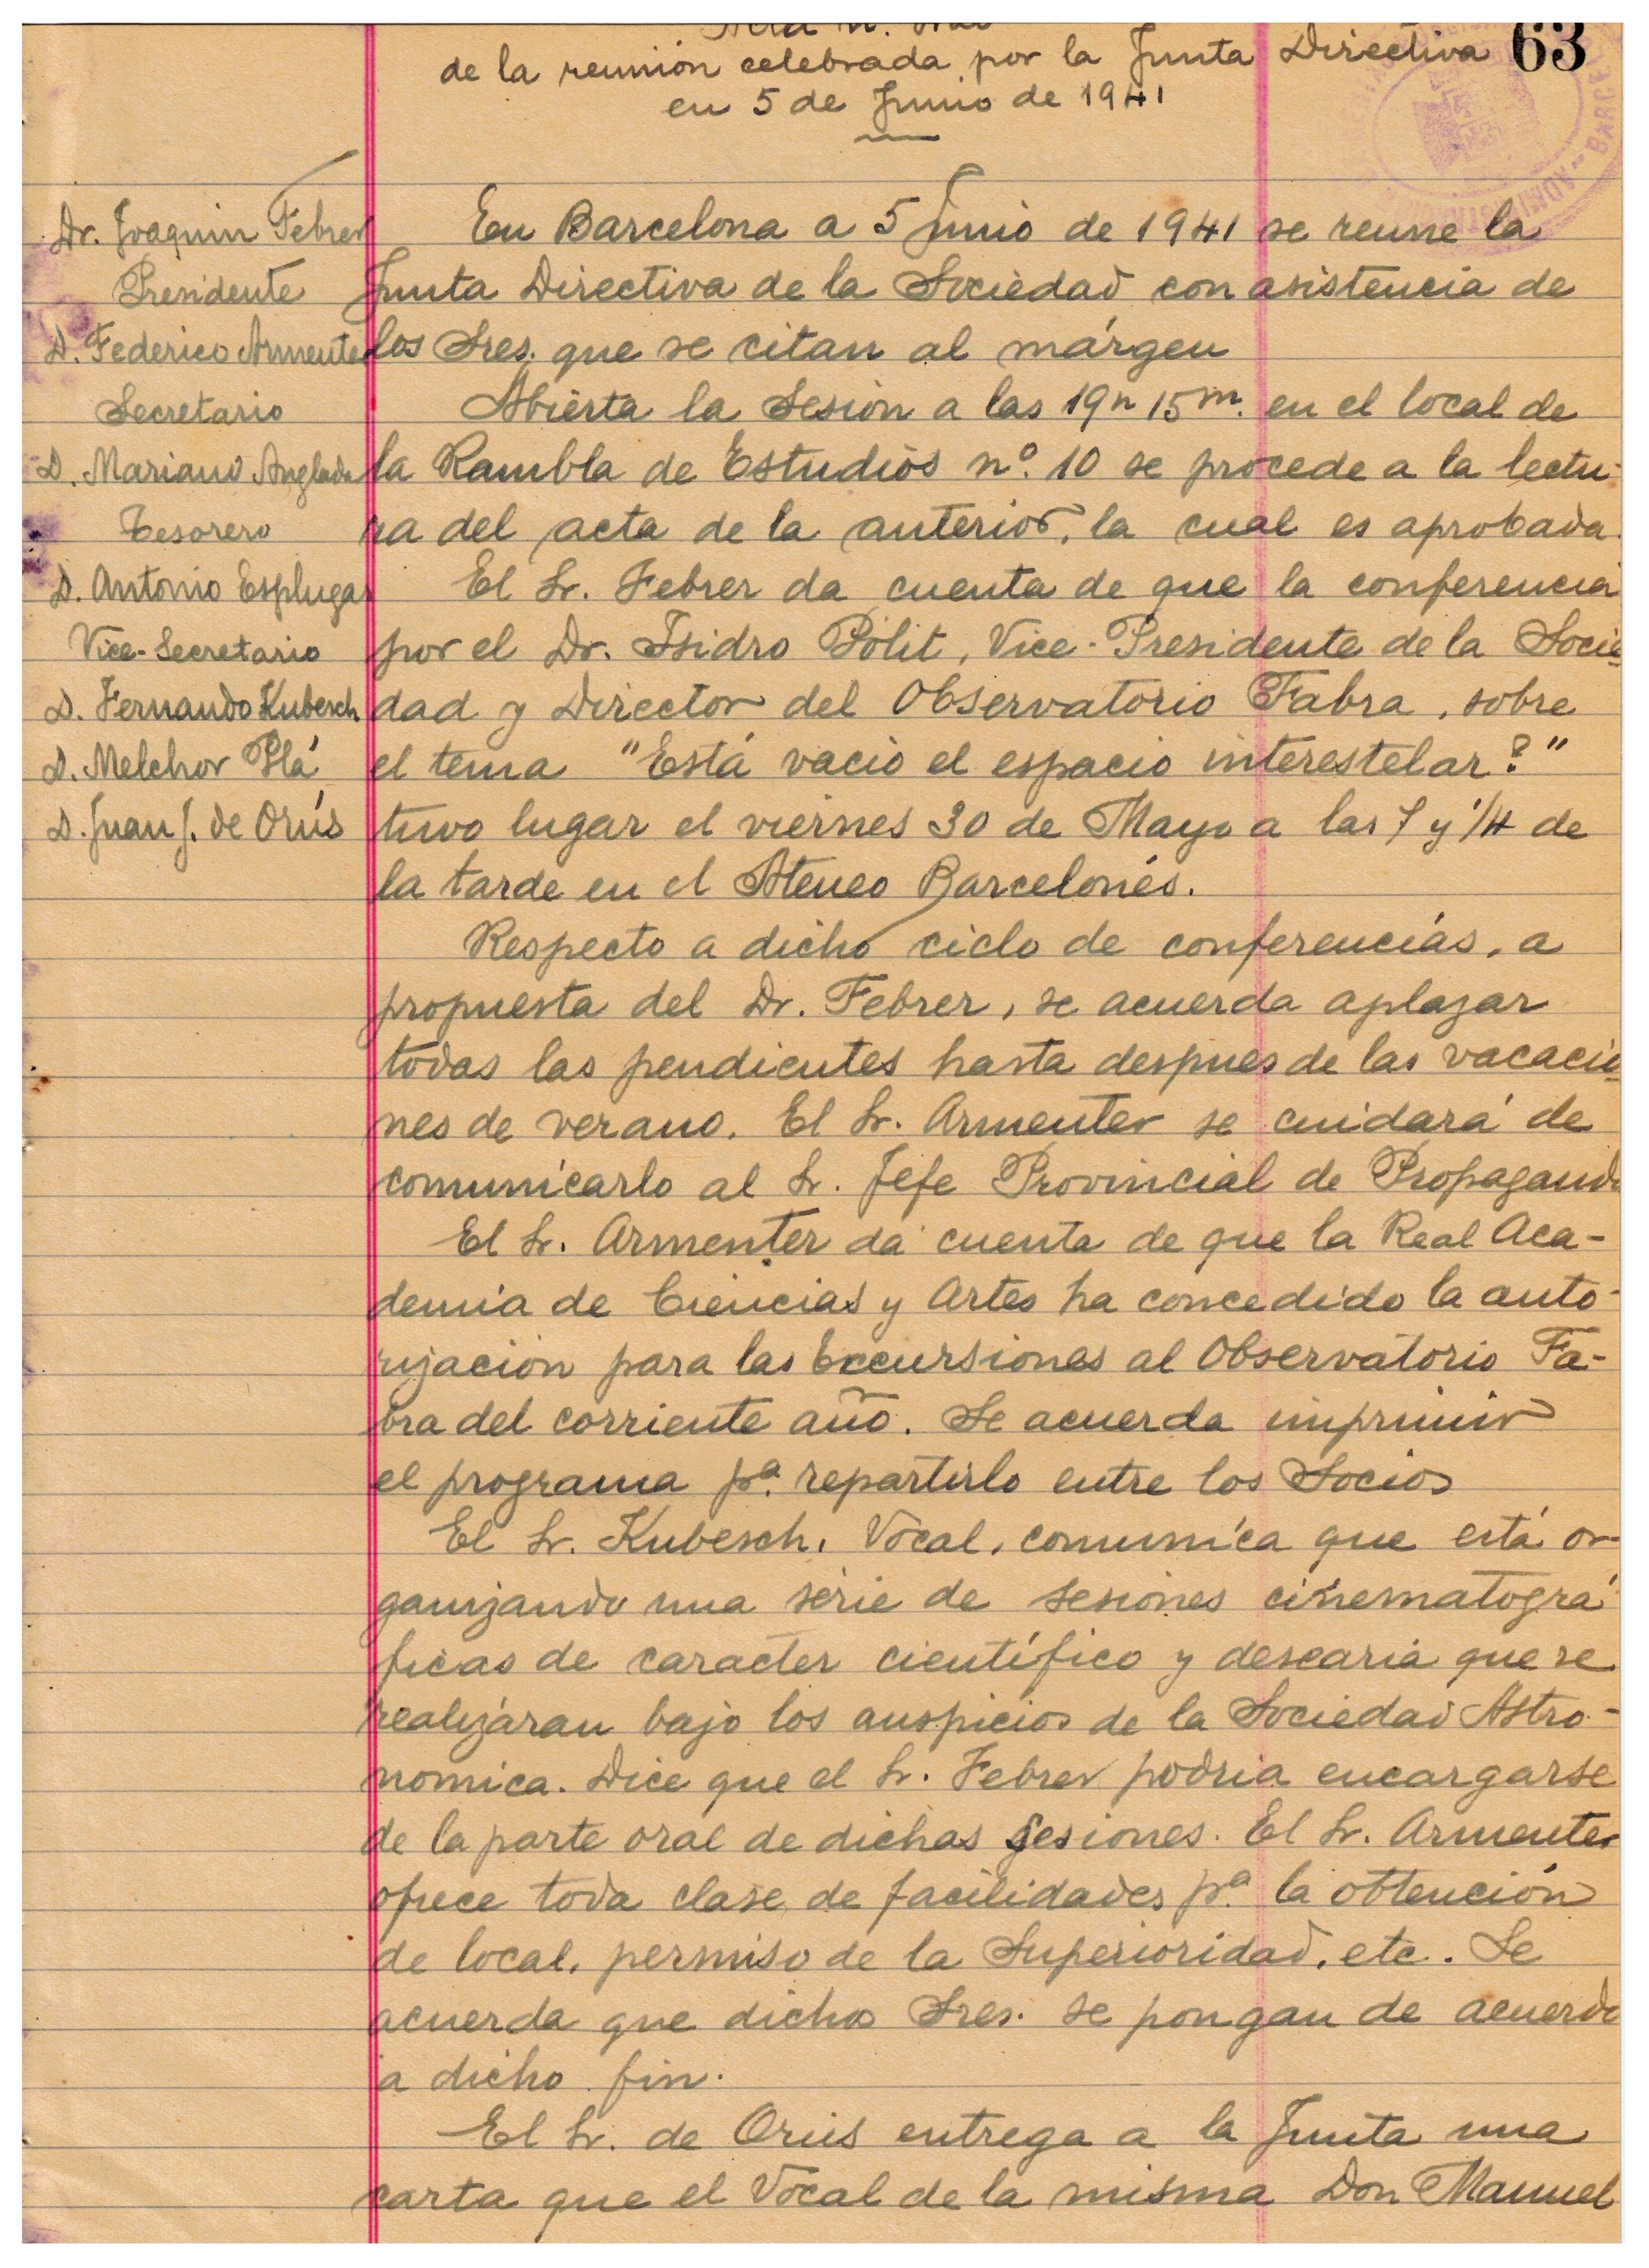 Acta n.
de la reunión celebrada por la Junta Directiva 63
en 5 de Junio de 1941
Dr. Joaquin Febrer
Presidente
D. Federico Armenter
Secretario
D. Mariano Anglada
Tesorero
D. Antonio Esplugas
Vice-Secretario
D. Fernando Kubesch
D. Melchor Plá
D. Juan J. de Orús
En Barcelona a 5 junio de 1941 se reune la
Junta Directiva de la Sociedad con asistencia de
los Sres. que se citan al márgen
Abierta la Sesión a las 19h 15m. en el local de
la Rambla de Estudios nº. 10 se procede a la lectu-
ra del acta de la anterior, la cual es aprobada.
El Sr. Febrer da cuenta de que la conferencia
por el Dr. Isidro Pólit, Vice-Presidente de la Socie-
dad y Director del Observatorio Fabra, sobre
el tema "Está vacio el espacio interestelar?"
tuvo lugar el viernes 30 de Mayo a las 7 y 1/4 de
la tarde en el Ateneo Barcelonés.
Respecto a dicho ciclo de conferencias, a
propuesta del Dr. Febrer, se acuerda aplazar
todas las pendientes hasta despues de las vacacio-
nes de verano. El Sr. Armenter se cuidará de
comunicarlo al Sr. Jefe Provincial de Propaganda
El Sr. Armenter da cuenta de que la Real Aca-
demia de Ciencias y Artes ha concedido la auto-
rización para las Excursiones al Observatorio Fa-
bra del corriente año. Se acuerda imprimir
el programa pª. repartirlo entre los Socios
El Sr. Kubesch, Vocal, comunica que está or-
ganizando una serie de sesiones cinematográ-
ficas de caracter científico y desearia que se
realizáran bajo los auspicios de la Sociedad Astro-
nomica. Dice que el Sr. Febrer podria encargarse
de la parte oral de dichas Sesiones. El Sr. Armenter
ofrece toda clase de facilidades pª. la obtención
de local, permiso de la Superioridad, etc. Se
acuerda que dichos Sres. se pongan de acuerdo
a dicho fin.
El Sr. de Orús entrega a la Junta una
carta que el Vocal de la misma Don Manuel